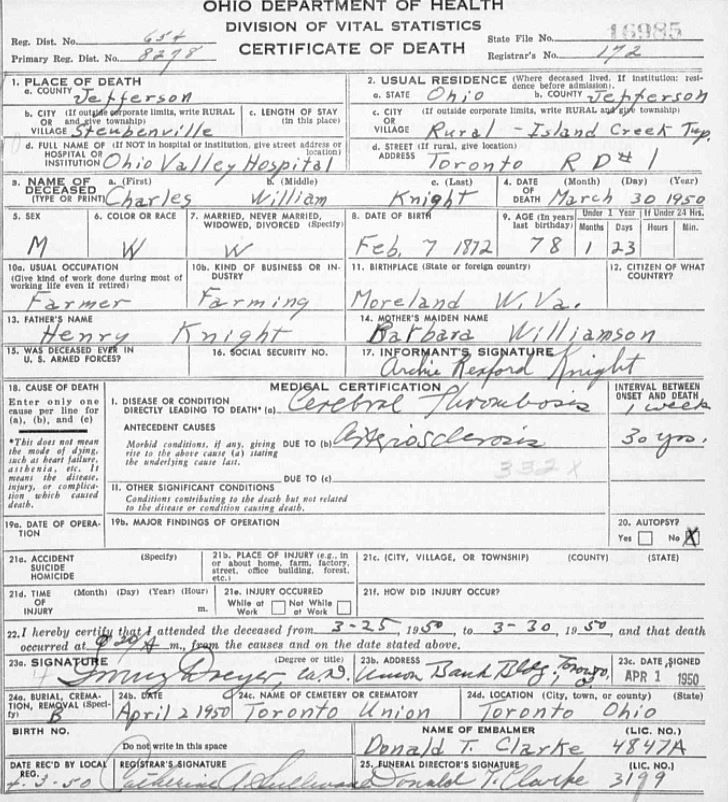 OHIO DEPARTMENT OF HEALTH
DIVISION OF VITAL STATISTICS
CERTIFICATE OF DEATH
Reg. Dist. No. 654
Primary Reg. Dist. 8298
State File No. 16985
Registrar's No. 172
1. PLACE OF DEATH
a. COUNTY Jefferson
b. CITY (If outside corporate limits, write RURAL
OR and give township)
VILLAGE Steubenville
c. LENGTH OF STAY
(in this place)
d. FULL NAME OF (If NOT in hospital or institution, give street address or
HOSPITAL OR location)
INSTITUTION Ohio Valley Hospital
2. USUAL RESIDENCE (Where deceased lived. If institution: resi-
dence before admission).
a. STATE Ohio b. COUNTY Jefferson
c. CITY (If outside corporate limits, write RURAL and give township)
OR
VILLAGE Rural - Island Creek Twp.
d. STREET (If rural, give location)
ADDRESS Toronto R D # 1
3. NAME OF a. (First) b. (Middle) c. (Last)
DECEASED
(TYPE OR PRINT) Charles William Knight
4. DATE (Month) (Day) (Year)
OF
DEATH March 30 1950
5. SEX
M
6. COLOR OR RACE
W
7. MARRIED, NEVER MARRIED,
WIDOWED, DIVORCED (Specify)
W
8. DATE OF BIRTH
Feb. 7 1872
9. AGE (In years
last birthday)
78
Under 1 Year
Months Days
1 23
If Under 24 Hrs.
Hours Min.
10a. USUAL OCCUPATION
(Give kind of work done during most of
working life even if retired)
Farmer
10b. KIND OF BUSINESS OR IN-
DUSTRY
Farming
11. BIRTHPLACE (State or foreign country)
Moreland W. Va.
12. CITIZEN OF WHAT
COUNTRY?
13. FATHER'S NAME
Henry Knight
14. MOTHER'S MAIDEN NAME
Barbara Williamson
15. WAS DECEASED EVER IN
U. S. ARMED FORCES?
16. SOCIAL SECURITY NO.
17. INFORMANT'S SIGNATURE
Archie Rexford Knight
18. CAUSE OF DEATH
Enter only one
cause per line for
(a), (b), and (c)
*This does not mean
the mode of dying,
such as heart failure,
asthenia, etc. It
means the disease,
injury, or complica-
tion which caused
death.
MEDICAL CERTIFICATION
I. DISEASE OR CONDITION
DIRECTLY LEADING TO DEATH* (a) Cerebral Thrombosis
ANTECEDENT CAUSES
Morbid conditions, if any, giving
rise to the above cause (a) stating
the underlying cause last.
DUE TO (b) Arteriosclerosis
332 X
DUE TO (c)
II. OTHER SIGNIFICANT CONDITIONS
Conditions contributing to the death but not related
to the disease or condition causing death.
INTERVAL BETWEEN
ONSET AND DEATH
1 week
30 yrs.
19a. DATE OF OPERA-
TION
19b. MAJOR FINDINGS OF OPERATION
20. AUTOPSY?
Yes No X
21a. ACCIDENT (Specify)
SUICIDE
HOMICIDE
21b. PLACE OF INJURY (e.g., in
or about home, farm, factory,
street, office building, forest,
etc.)
21c. (CITY, VILLAGE, OR TOWNSHIP) (COUNTY) (STATE)
21d. TIME (Month) (Day) (Year) (Hour)
OF
INJURY m.
21e. INJURY OCCURRED
While at Not While
Work at Work
21f. HOW DID INJURY OCCUR?
22. I hereby certify that I attended the deceased from 3-25, 1950, to 3-30, 1950, and that death
occurred at A m., from the causes and on the date stated above.
23a. SIGNATURE (Degree or title)
Dreyer M.D.
23b. ADDRESS
Union Bank Bldg, Toronto, O.
23c. DATE SIGNED
APR 1 1950
24a. BURIAL, CREMA-
TION, REMOVAL (Speci-
fy) B
24b. DATE
April 2 1950
24c. NAME OF CEMETERY OR CREMATORY
Toronto Union
24d. LOCATION (City, town, or county) (State)
Toronto Ohio
BIRTH NO.
Do not write in this space
NAME OF EMBALMER (LIC. NO.)
Donald T. Clarke 4847A
DATE REC'D BY LOCAL
REG.
4-3-50
REGISTRAR'S SIGNATURE
Catherine A Sullivan
25. FUNERAL DIRECTOR'S SIGNATURE (LIC. NO.)
Donald T. Clarke 3199